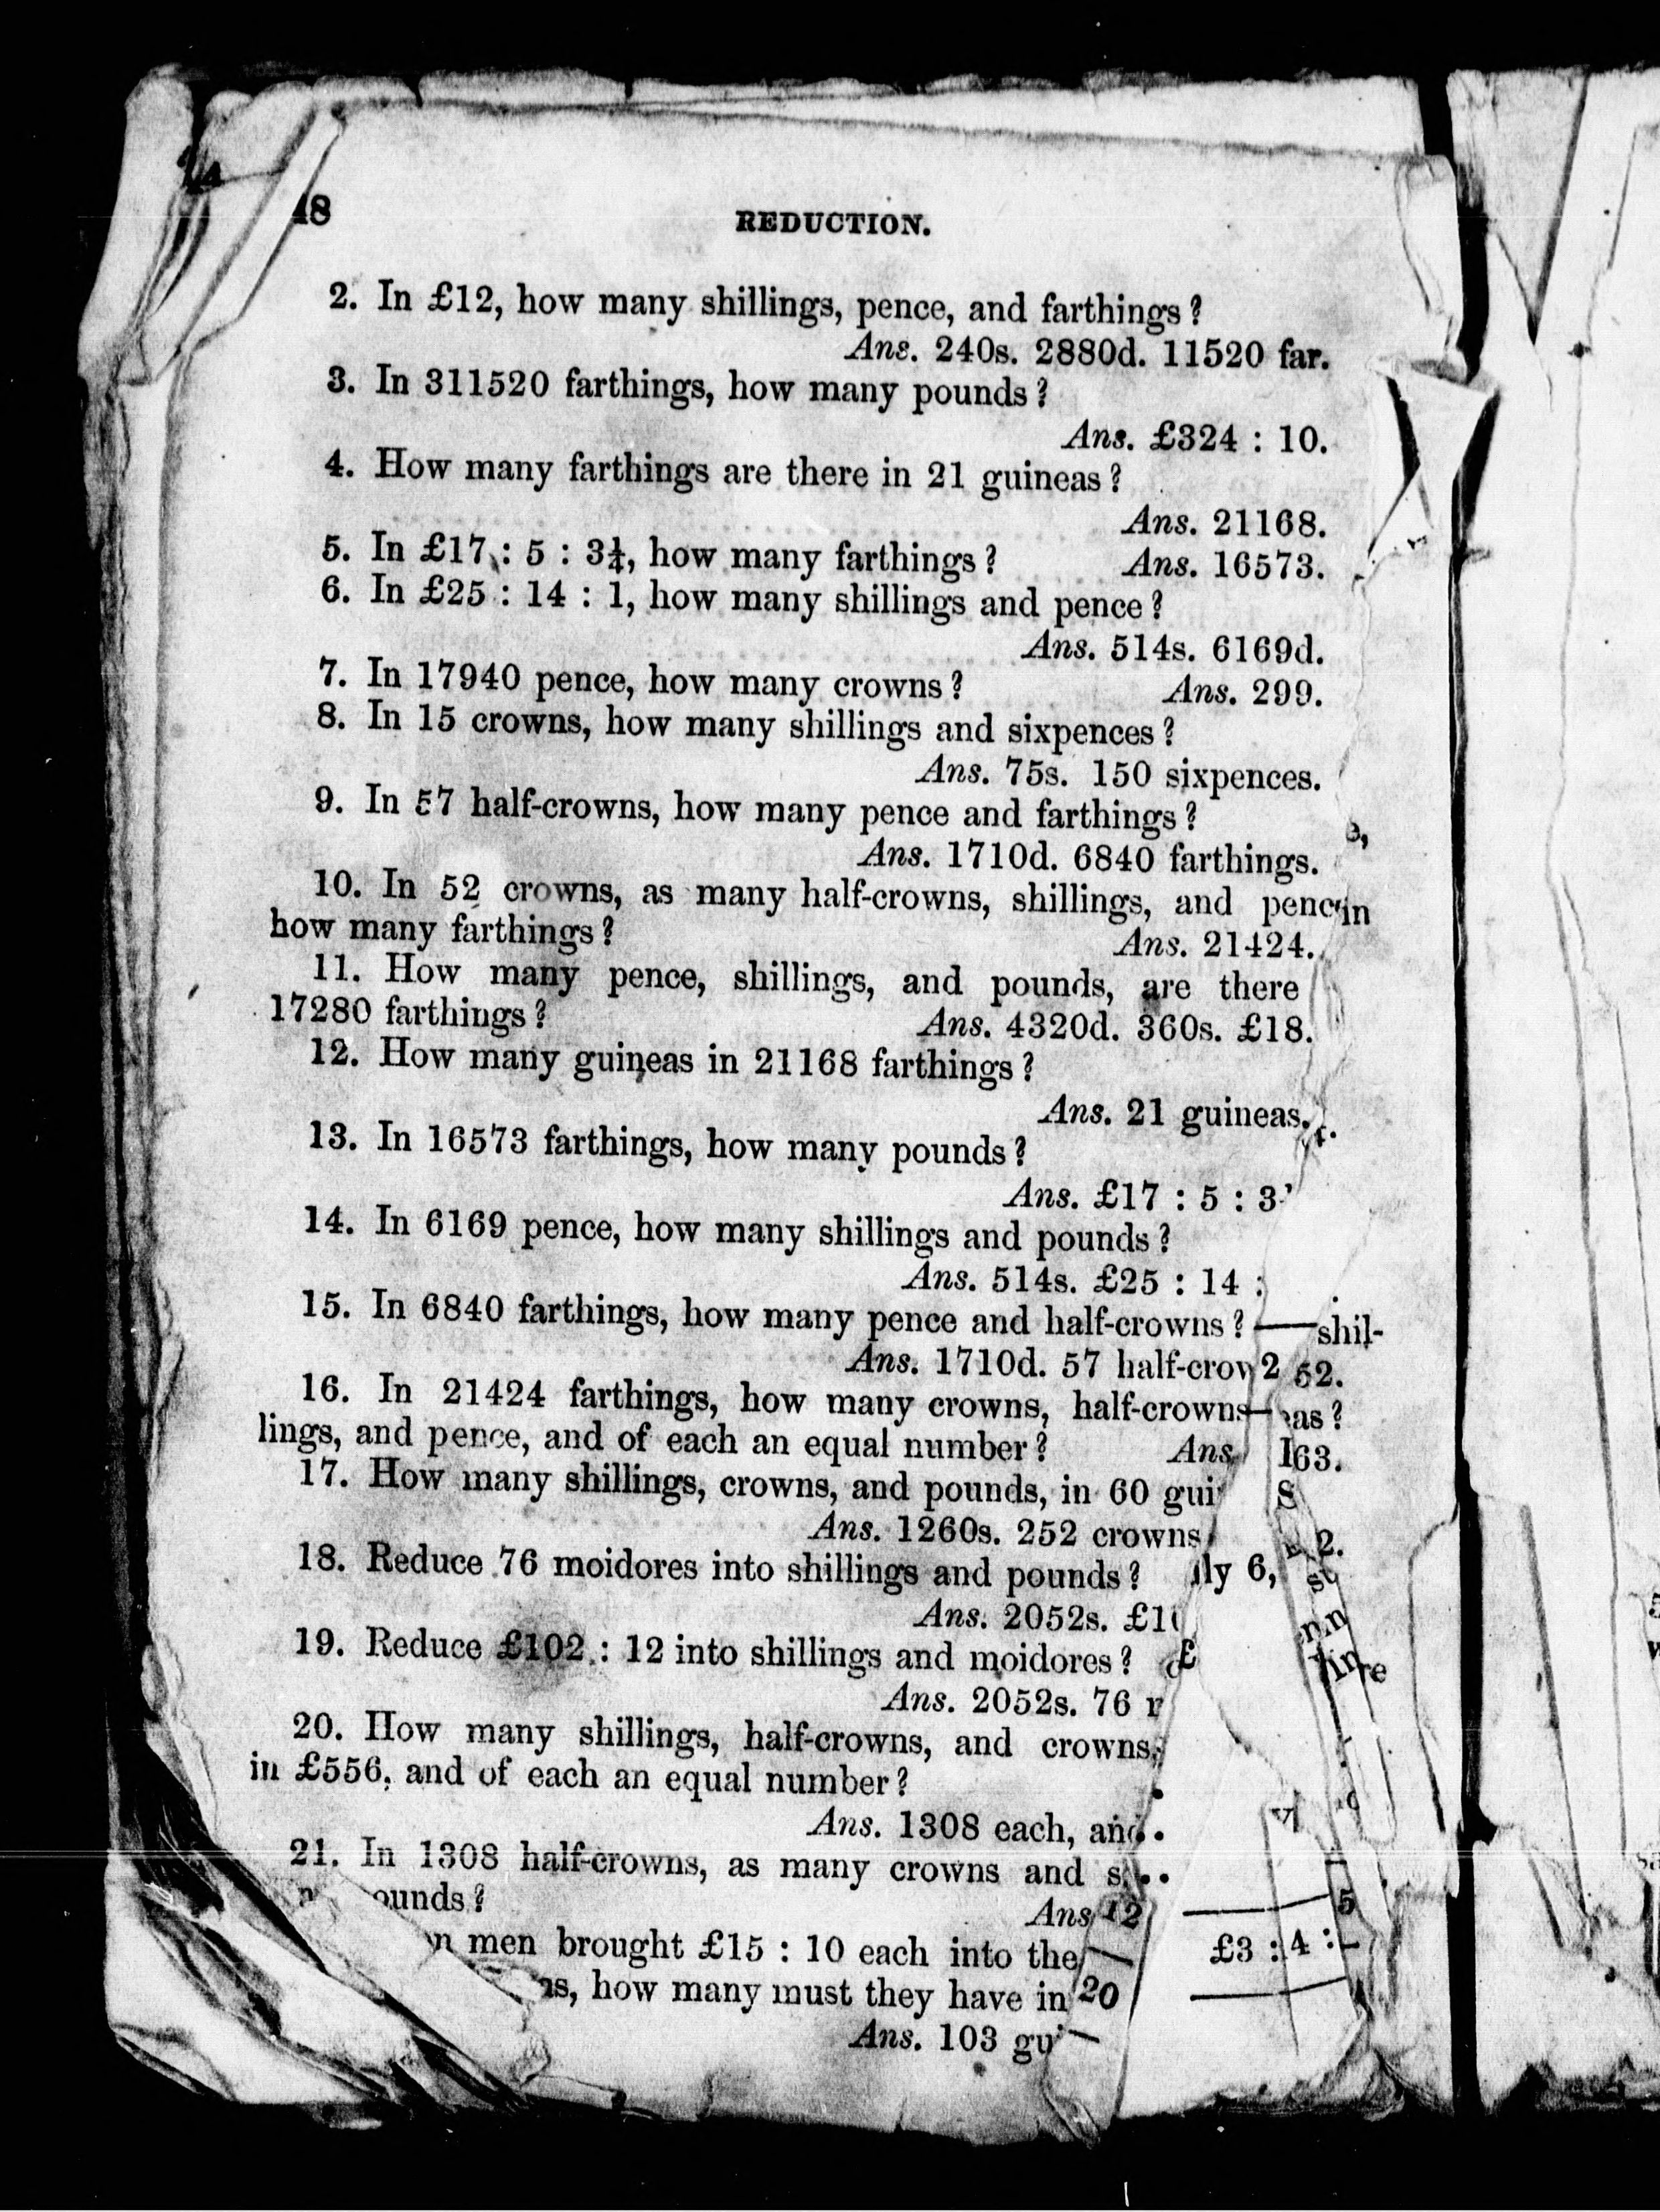 48
REDUCTION.
2. In £12, how many shillings, pence, and farthings?
Ans. 240s. 2880d. 11520 far.
3. In 311520 farthings, how many pounds?
Ans. £324 : 10.
4. How many farthings are there in 21 guineas?
Ans. 21168.
5. In £17 : 5 : 3¼, how many farthings? Ans. 16573.
6. In £25 : 14 : 1, how many shillings and pence?
Ans. 514s. 6169d.
7. In 17940 pence, how many crowns? Ans. 299.
8. In 15 crowns, how many shillings and sixpences?
Ans. 75s. 150 sixpences.
9. In 57 half-crowns, how many pence and farthings?
Ans. 1710d. 6840 farthings.
10. In 52 crowns, as many half-crowns, shillings, and
how many farthings? Ans. 21424.
11. How many pence, shillings, and pounds, are there
17280 farthings? Ans. 4320d. 360s. £18.
12. How many guineas in 21168 farthings?
Ans. 21 guineas.
13. In 16573 farthings, how many pounds?
Ans. £17 : 5 : 3
14. In 6169 pence, how many shillings and pounds?
Ans. 514s. £25 : 14 :
15. In 6840 farthings, how many pence and half-crowns? shil-
Ans. 1710d. 57 2 52.
16. In 21424 farthings, how many crowns, half-crowns as?
lings, and pence, and of each an equal number? Ans 163.
17. How many shillings, crowns, and pounds, in 60
Ans. 1260s. 252 crowns 2.
18. Reduce 76 moidores into shillings and pounds? ly 6,
Ans. 2052s.
19. Reduce £102 : 12 into shillings and moidores? £
Ans. 2052s. 76
20. How many shillings, half-crowns, and crowns,
in £556, and of each an equal number?
Ans. 1308 each,
21. In 1308 half-crowns, as many crowns and
ounds? Ans 12
n men brought £15 : 10 each into the £3 : 4 : 5
s, how many must they have in 20
Ans. 103